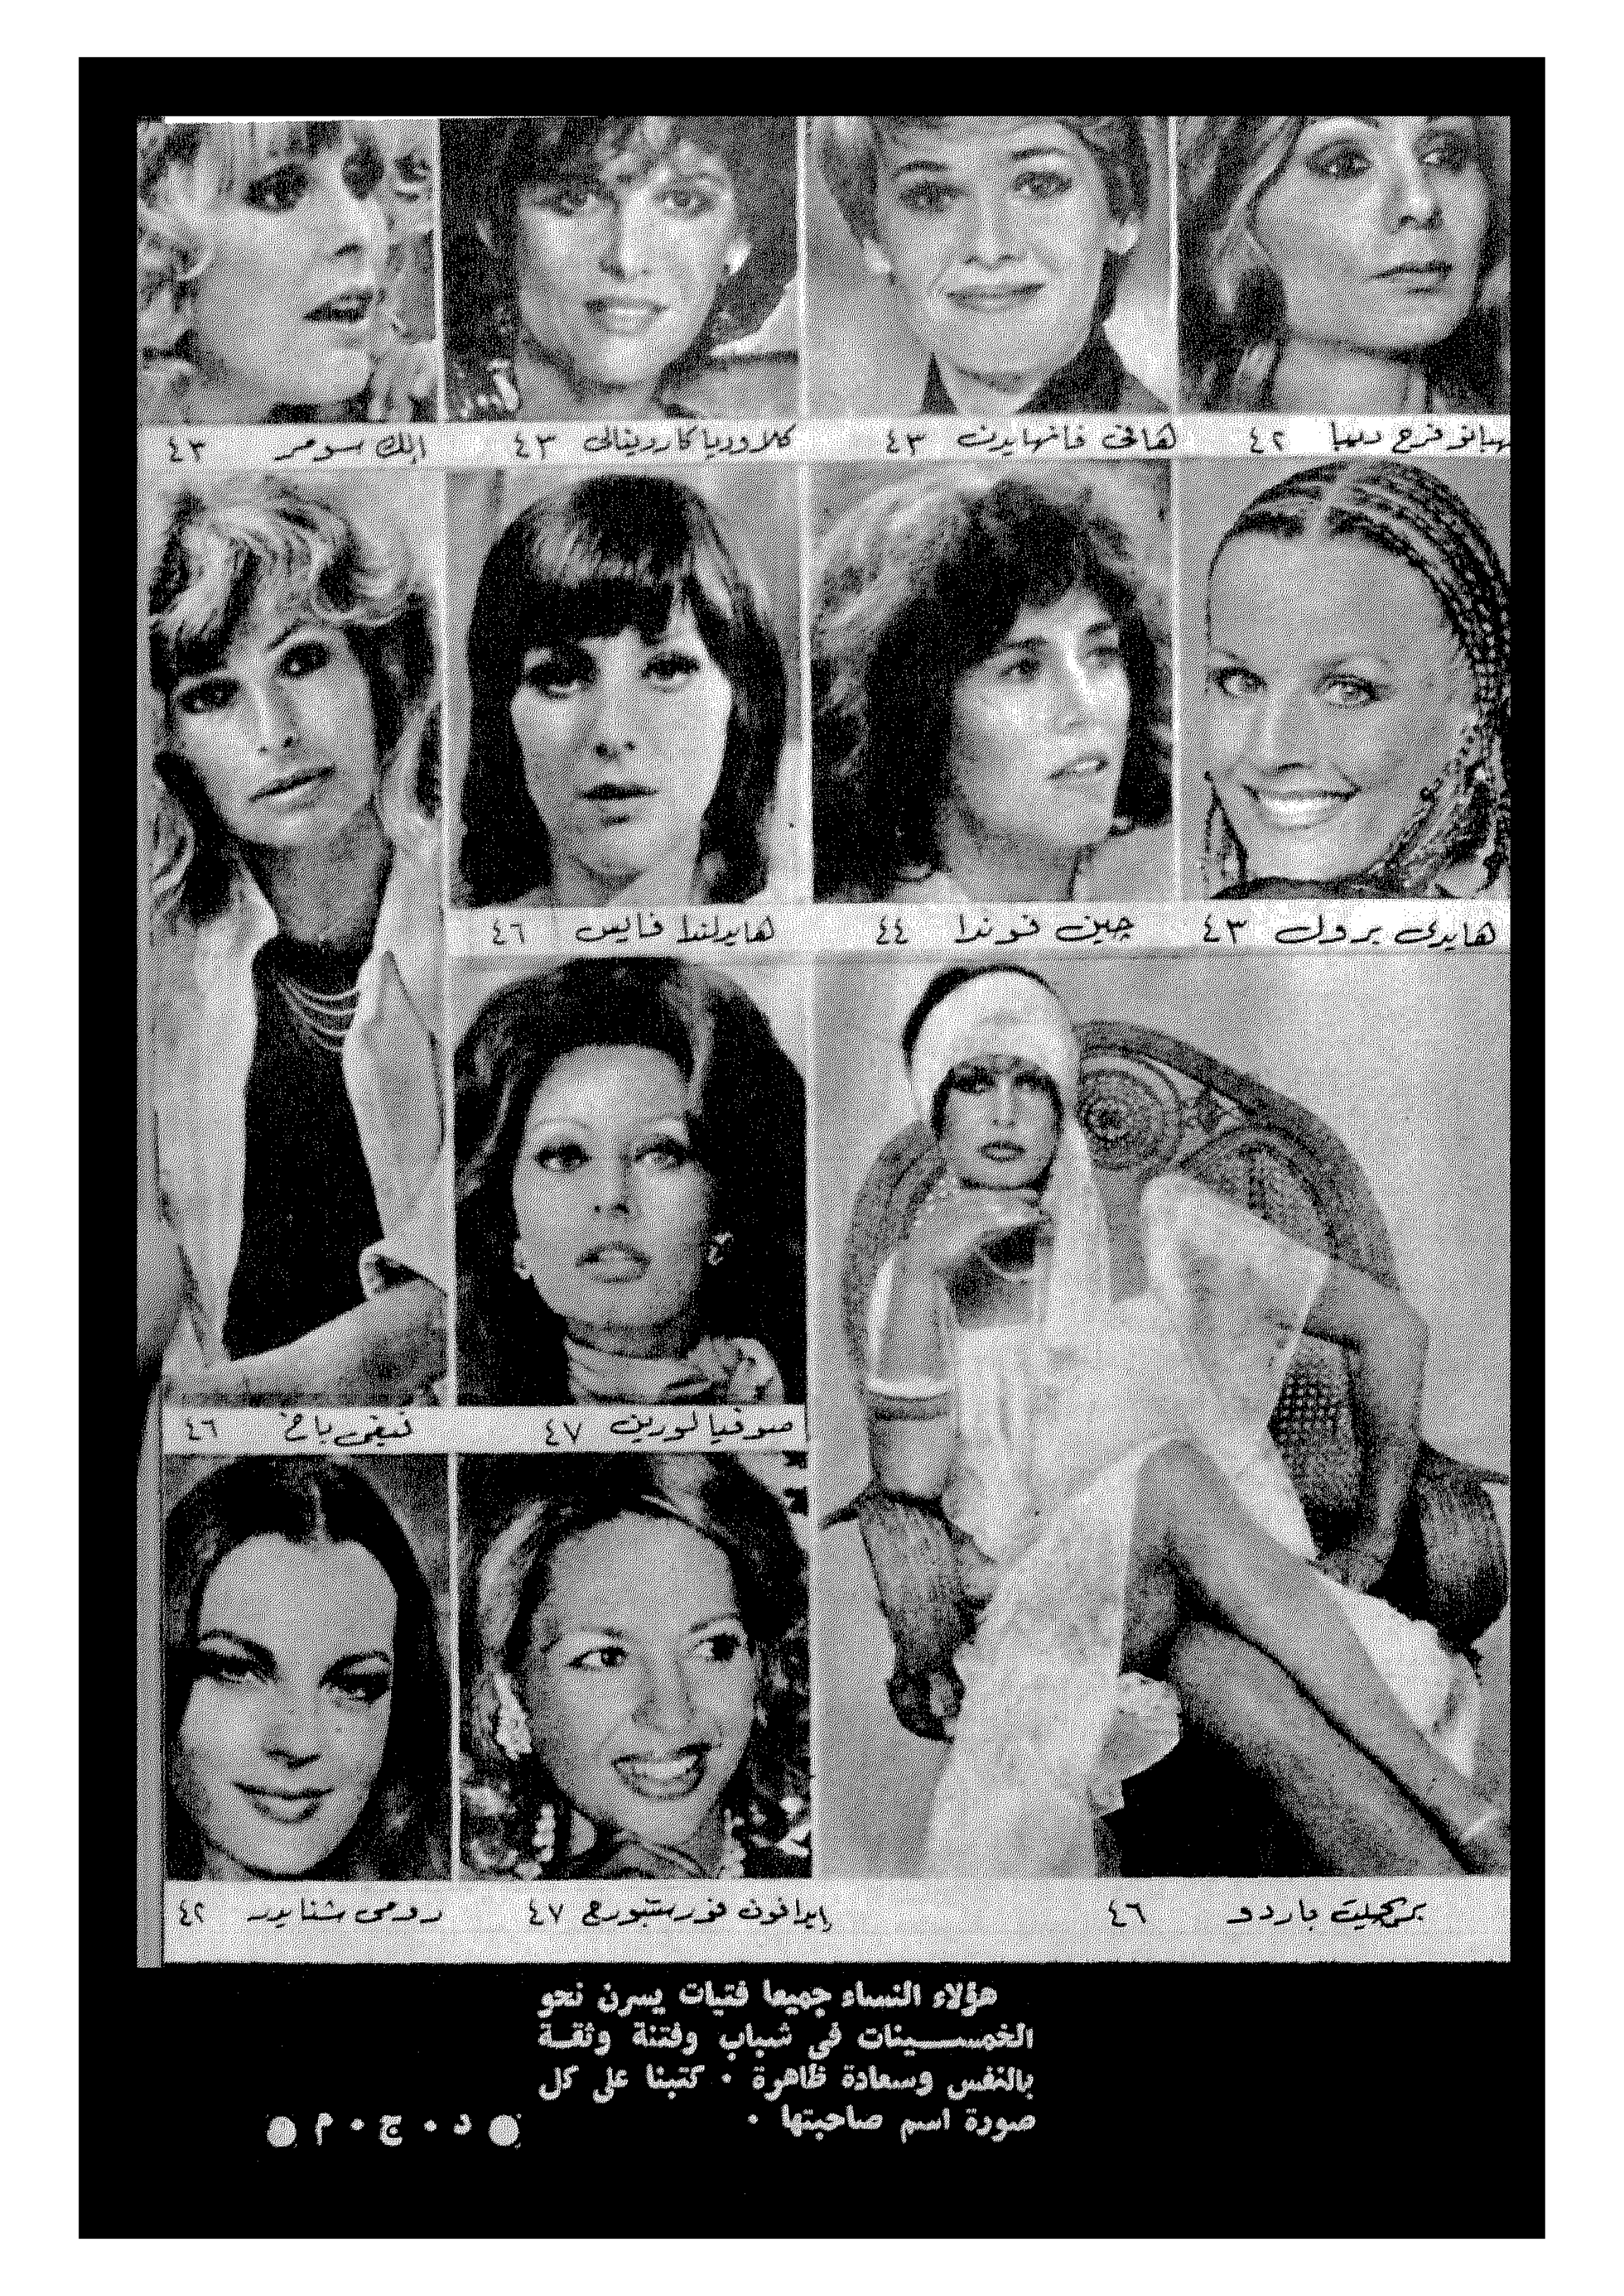 فرح ديبا ٤٢
هانى فانهايدن ٤٣
كلاوديا كاردينالى ٤٣
الك سومر ٤٣
هايدى برول ٤٣
چين فوندا ٤٤
هايدلندا فايس ٤٦
صوفيا لورين ٤٧
باخ ٤٦
بركجيت باردو ٤٦
إيرافون فورستنبورج ٤٧
رومى شنايدر ٤٢
هؤلاء النساء جميعا فتيات يسرن نحو
الخمسينات فى شباب وفتنة وثقة
بالنفس وسعادة ظاهرة . كتبنا على كل
صورة اسم صاحبتها .
● د . ج . م ●